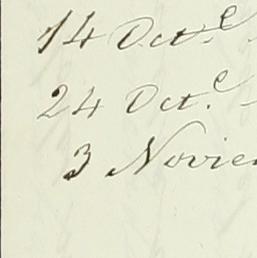 14 Oct.e
24 Oct.e
3 Novie